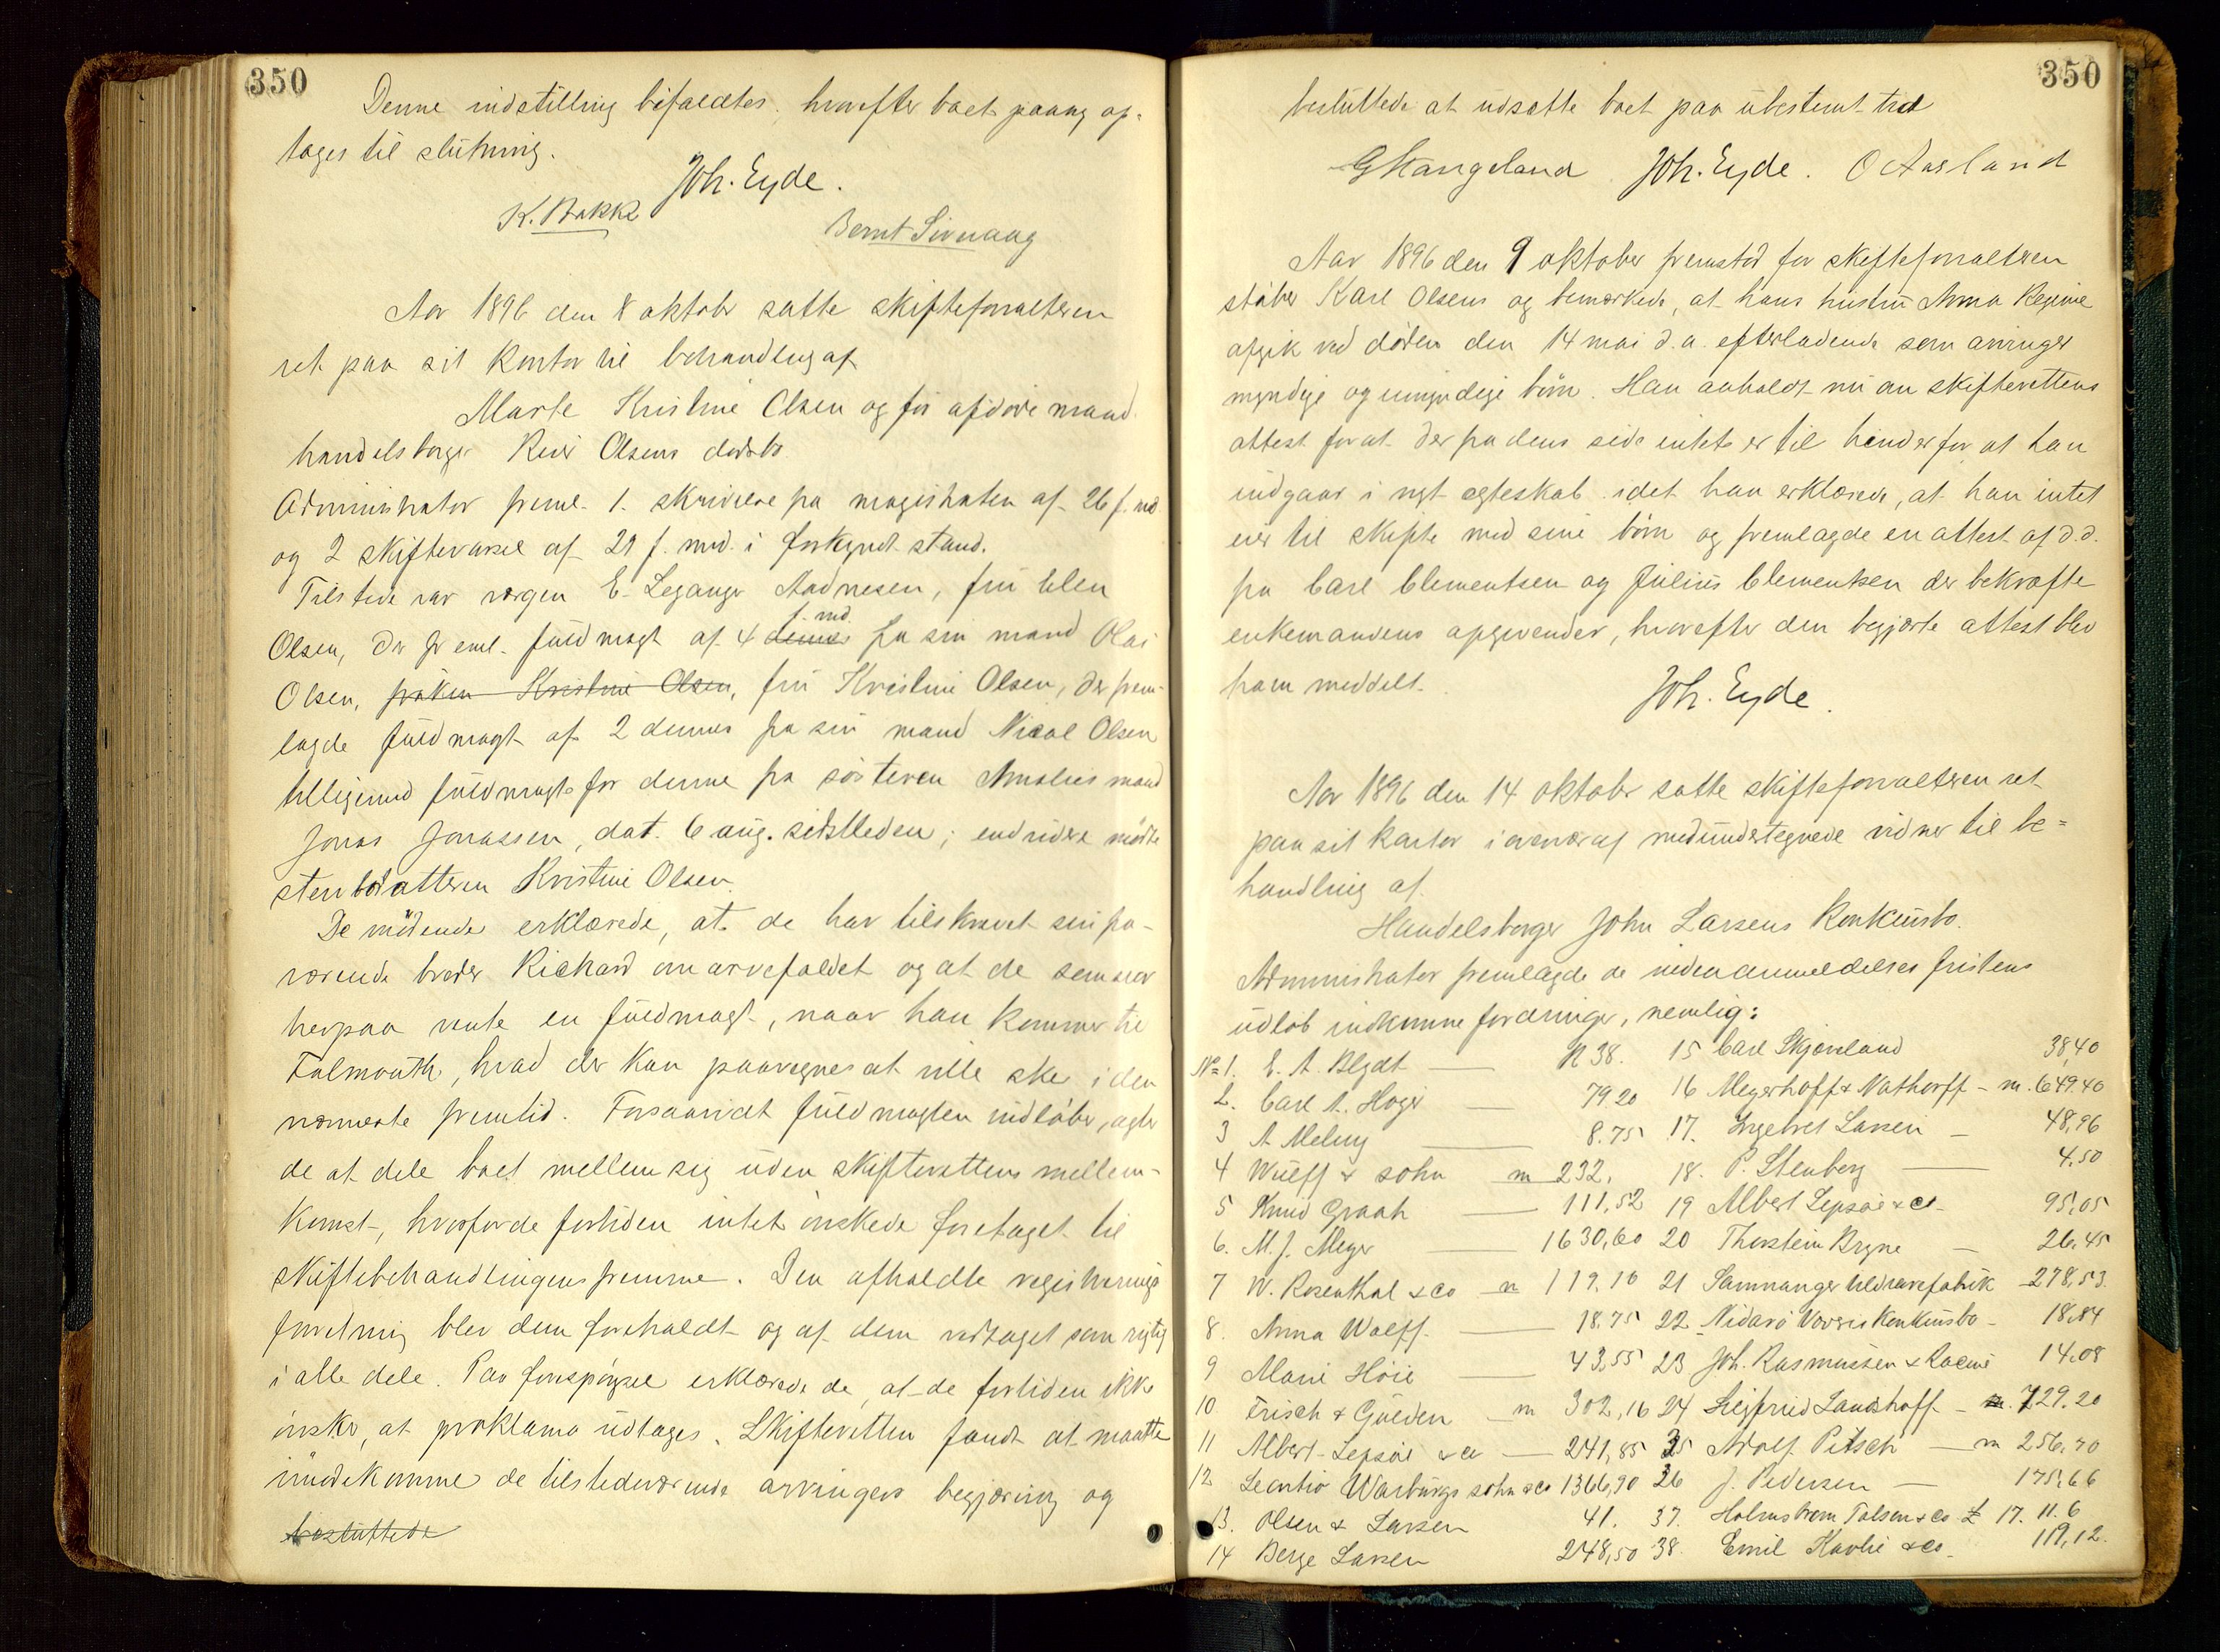 350
Denne indstilling bifaldtes, hvorefter boet paany op-
tages til slutning.
Joh. Eyde.
K. Bakke
Bernt Sivnaag
Aar 1896 den 8 oktober satte skifteforvalteren
ret paa sit kontor til behandling af
Marte Kristine Olsen og før afdøde mand
handelsborger Olsens dødsbo.
Administrator freml. 1. skrivelse fra magistraten af 26 f. md.
og 2 skiftevarsel af 29 f. md. i forkyndt stand.
Tilstede var vergen E. Leganger Aadnesen, fru Elen
f. md.
Olsen, der freml. fuldmagt af 4 dennes fra sin mand Olai
Olsen, frøken Kristine Olsen, fru Kristine Olsen, der frem-
lagde fuldmagt af 2 dennes fra sin mand Nicol Olsen
tilligemed fuldmagt for denne fra søsteren Amalies mand
Jonas Jonassen, dat. 6 aug. sidstleden; endvidere mødte
stervbodatteren Kristine Olsen.
De mødende erklærede, at de har tilskrevet sin fra-
værende broder Rickard om arvefaldet og at de som svar
herpaa vente en fuldmagt, naar han kommer til
Falmouth, hvad der kan paaregnes at ville ske i den
nærmeste fremtid. Forsaavidt fuldmagten indløber, agter
de at dele boet mellem sig uden skifterettens mellem-
komst, hvorfor de fortiden intet ønskede foretaget til
skiftebehandlingens fremme. Den afholdte registrerings
forretning blev dem foreholdt og af dem vedtaget som rigtig
i alle dele. Paa forespørgsel erklærede de, at de fortiden ikke
ønske, at proklama udtages. Skifteretten fandt at maatte
imødekomme de tilstedeværende arvingers begjæring og
besluttede
350
besluttede at udsætte boet paa ubestemt tid
G Hangeland Joh. Eyde. O Aasland
Aar 1896 den 9 oktober fremstod for skifteforvalteren
støber Karl Olsen og bemerkede, at hans hustru Anna Regine
afgik ved døden den 14 mai d. a. efterladende som arvinger
myndige og umyndige børn. Han anholdt nu om skifterettens
attest for at der fra dens side intet er til hinder for at han
indgaar i nyt egteskab idet han erklærede, at han intet
eier til skifte med sine børn og fremlagde en attest af d. d.
fra Carl Clementsen og Julius Clementsen der bekræfte
enkemandens opgivender, hvorefter den begjærte attest blev
ham meddelt.
Joh. Eyde.
Aar 1896 den 14 oktober satte skifteforvalteren ret
paa sit kontor i overvær af medundertegnede vidner til be=
handling af
Handelsborger John Larsens konkursbo.
Administrator fremlagde de inden anmeldelsesfristens
udløb indkomne fordringer, nemlig:
No 1. E. A. Blydt — K 38.
2. Carl A. Høyer — 79 20
3 A. Meling — 8.75
4 Wulff & sohn m 232.
5 Knud Graah — 111,52
6. M. J. Meyer — 1630,60
7 W. Rosenthal & co m 119.10
8. Anna Wolff — 18.75
9 Marie Høie — 43,55
10 Frisch & Gulden m 302,16
11 Albert Lepsøe & co — 241,85
12 Warburgs sohn & co 1366,90
13. Olsen & Larsen 41.
14 Berge Larsen 248,50
15 Carl Skjæveland 38,40
16 Meyerhoff & Nathorff — m. 649.40
17. Ingebret Larsen — 48,96
18. P. Stenberg — 4.50
19 Albert Lepsøe & co — 95,05
20 Thorstein Bryne — 26,45
21 Samnanger uldvarefabrik 278,53.
22 Nidarø Konkursbo — 18,84
23 Joh. Rasmussen & Racine 14,08
24 Siegfried Landshoff — m. 729.20
35 Adolf Pitsch — m 256,70
36 J. Pedersen — 175,66
37. Holmstrøm Tolsen & co £ 17. 11. 6
38. Emil Havlie & co. 119,12.